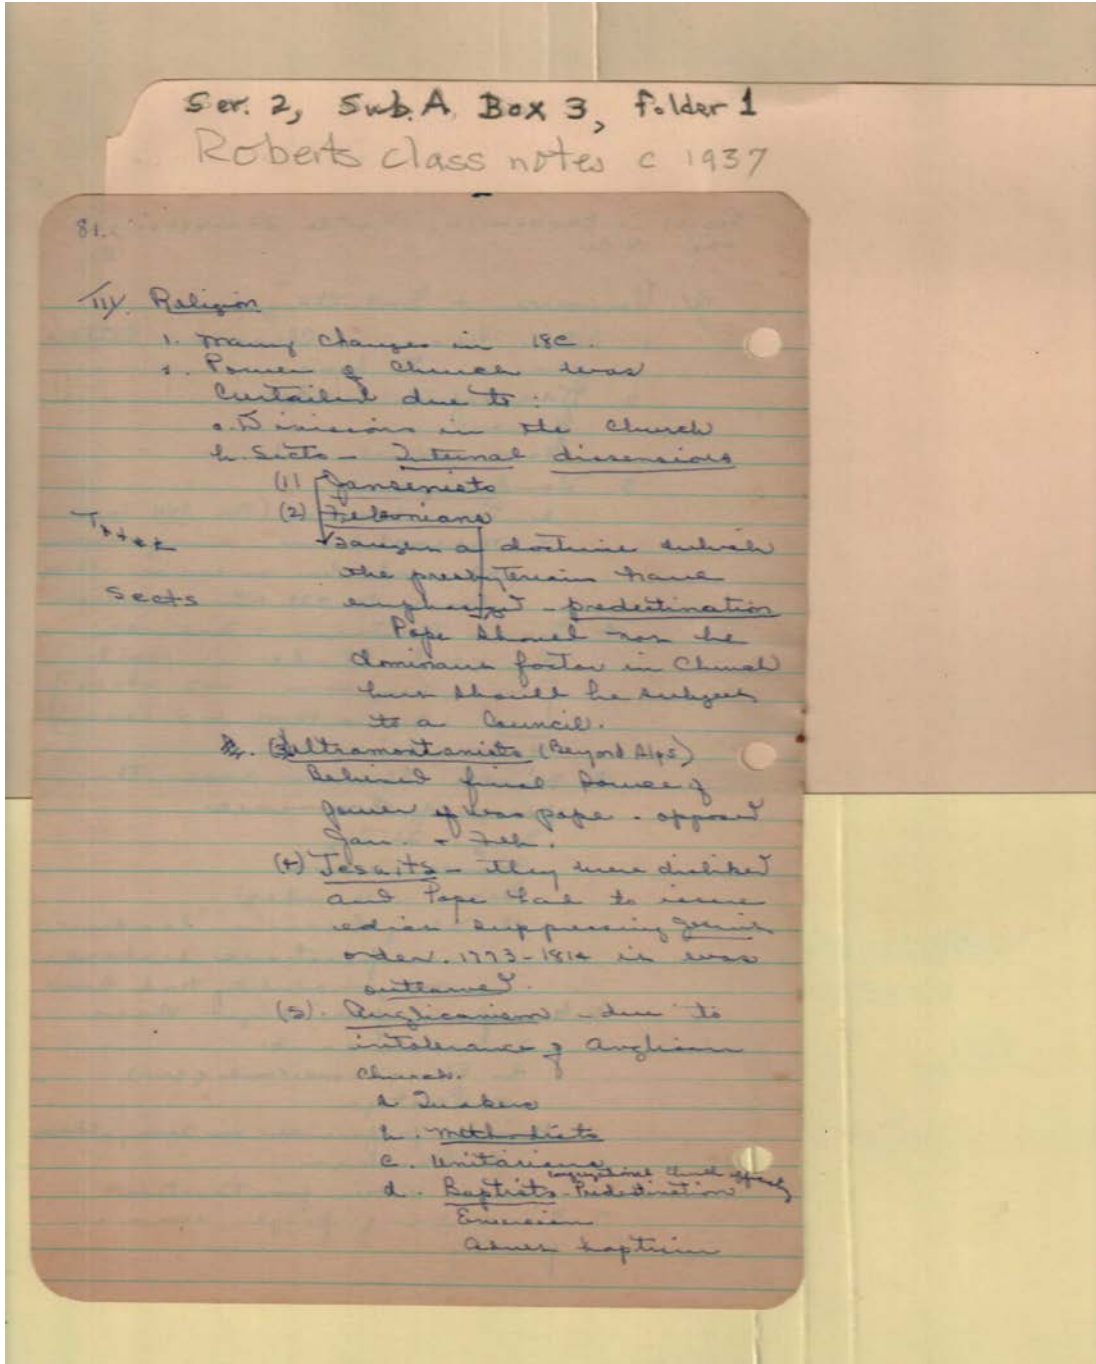 Ser. 2, Sub. A Box 3, folder 1
Roberts class notes c 1937
81.
III. Religion
1. Many changes in 18C.
2. Power of Church was
curtailed due to:
a. Divisions in the Church
b. Sects - Internal dissensions
(1) Jansenists
(2) Febronians
a doctrine which
the presbyterians have
emphasized - predestination
Pope should not be
dominant factor in Church
but should be subject
to a Council.
Sects
(3) Ultramontanists (Beyond Alps)
Believed final source of
power was pope - opposed
Jan. + Feb.
(4) Jesuits - they were disliked
and Pope had to issue
edict suppressing Jesuit
order. 1773-1814 it was
outlawed.
(5). Anglicanism - due to
intolerance of Anglican
Church.
a. Quakers
b. Methodists
c. Unitarians
congregational church
d. Baptists - Predestination
Immersion
Adult baptism